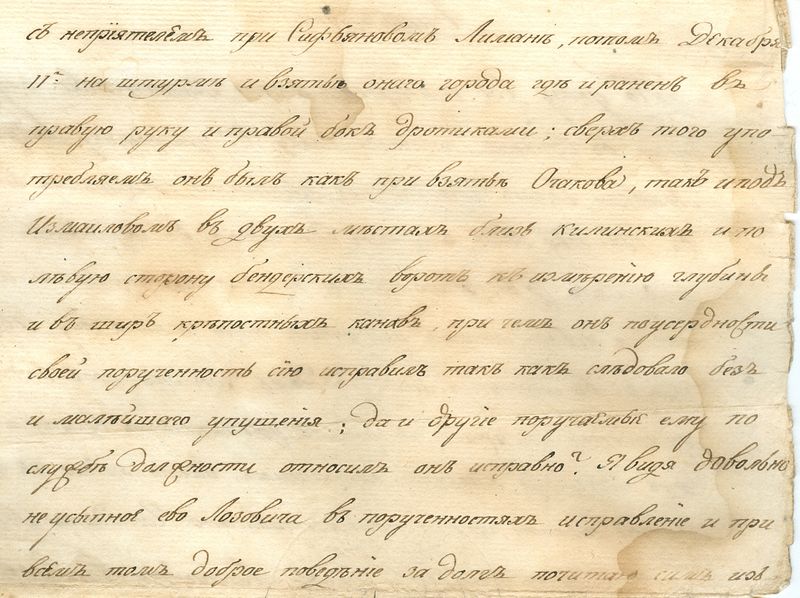 съ непріятелемъ при Сафьяновомъ Лиманѣ, потомъ Декабря
11г. на штурмѣ и взятью онаго города гдѣ и раненъ въ
правую руку и правой бокъ дротиками; сверхъ того упо
требляемъ онъ былъ какъ при взятьѣ Очакова, такъ и подъ
Измаиловомъ въ двухъ мѣстахъ близь Килинскихъ и по
лѣвую сторону бендерскихъ воротъ къ измѣренію глубины
и въ ширъ крѣпостныхъ канавъ, при чемъ онъ по усердности
своей порученность сію исправилъ такъ какъ слѣдовало безъ
и малѣйшаго упущенія; да и другіе поручаемыѣ ему по
службѣ должности относилъ онъ исправно. Я видя довольно
неусыпное ево Лозовича въ порученностяхъ исправленіе и при
всемъ томъ доброе поведѣніе за долгъ почитаю симъ изъ